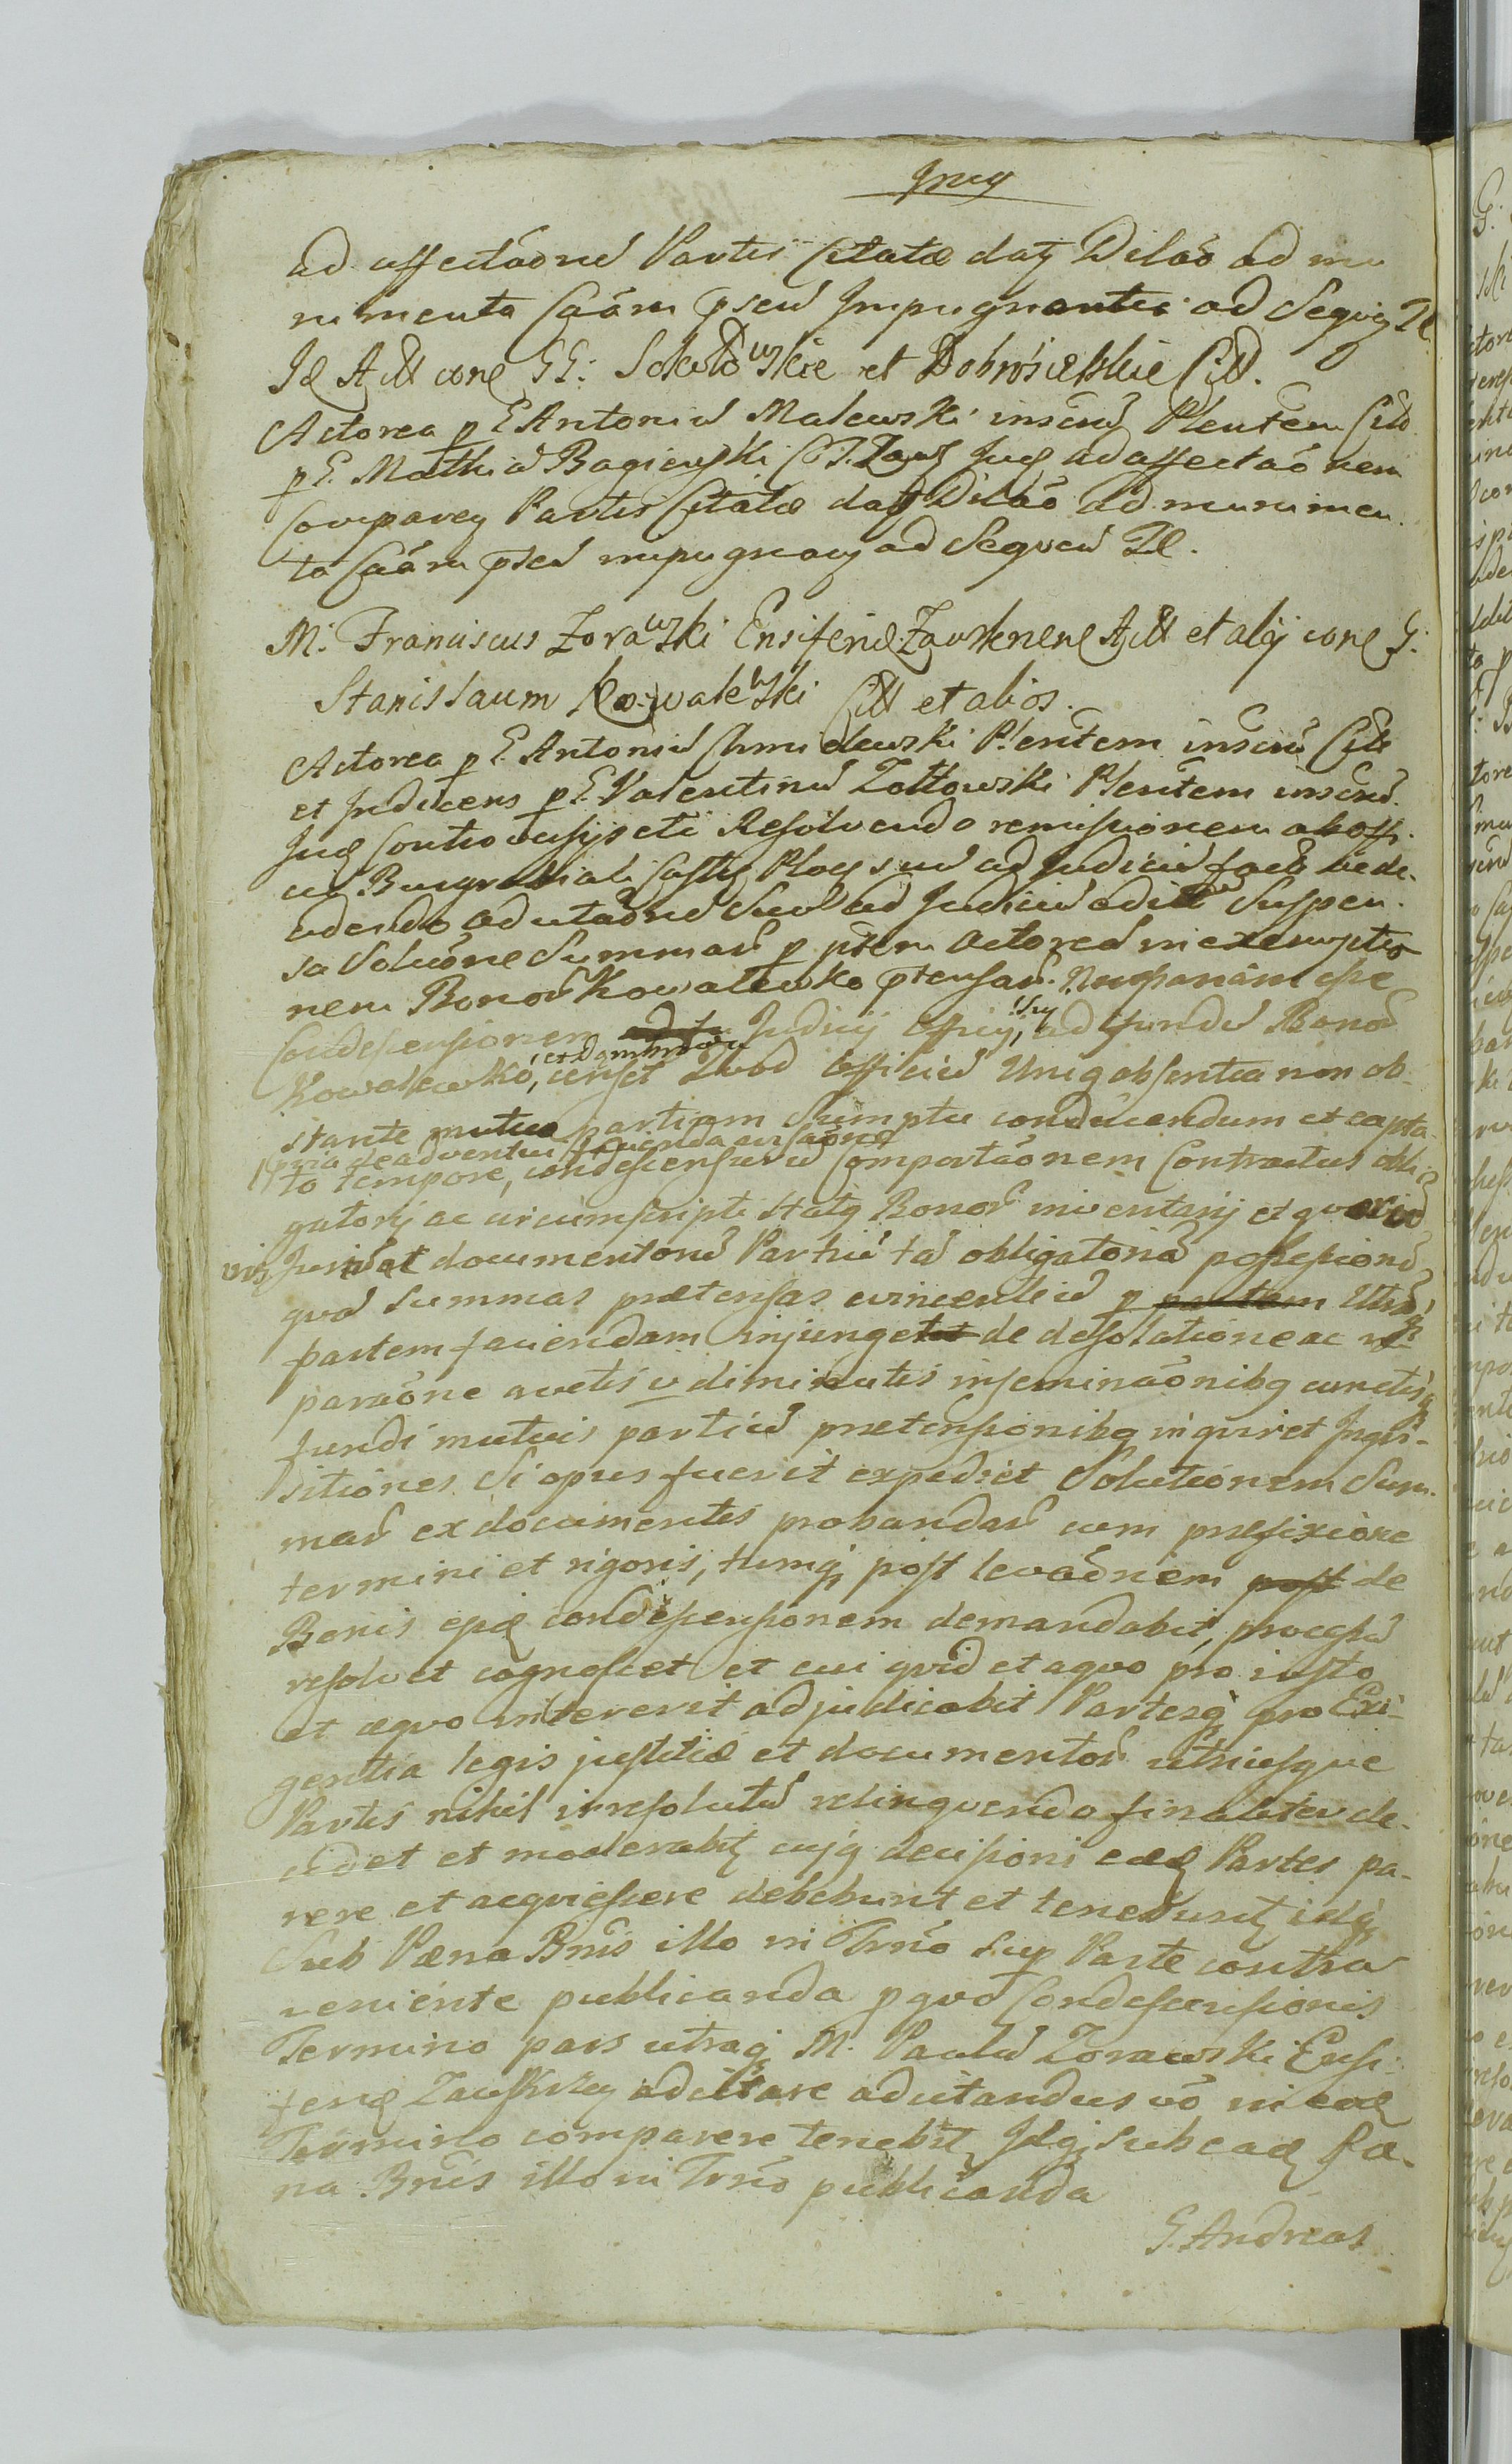 Jucq
ad affectãone͂ Partis Citatæ datq Dilãõ ad mu
nimenta Cãam pñsem Impugnantia ad Sequen Tẽ
Id Act cone GG: Sokołowskie et Dobrosielskie Citt.
Actorea p G Antoniu͂ Malewski inscru͂ Plentem Cita
p G. Mathia͂ Bagiewski C. T. Zaws Juq ad affectaõnem
Comparen Partis Citatæ datq Dilãõ ad munimen
ta Cãam pñsem impugnan ad Sequen Tẽ.
M. Franciscus Zorawski Ensiferid: Zawskrnen Act et alij cone G:
Stanislaum Kowalewski Citt et alios.
Actorea p G. Antoniu͂ Chmielewski Plentem inscru͂ Cita
et Inducens p G. Valentinu͂ Zołtowski Plentem inscru͂.
Juq Controversijs eti Resolvendo remissionem ab offi.
cio Burgrabiali Castri Ploc suu͂ ad Judiciu͂ fact vide.
udendo ad citaõne͂ Suu͂ ad Judiciu͂ adit Suspen.
sa Solutione Summar͂ p pñtem Actorea͂ in exemptio
nem Bonor͂ Kowalewko pt͂ensar͂.
Condescensionem Judicij Officij, sui ad fundu͂ Bonor͂
Kowalewko, et Dombrowa censet Quod Officiu͂ Unig absentia non ob-
stante mutuo partium Sumptu conducendum et capta
pria de adventu facienda
to tempore, condescensuru͂ Comportaõnem Contractus obli
gatorij ac circumscripti Statq Bonor͂ inventarij et quorumvis
Juriu͂ et documentoru͂ Partiu͂ ta͂ obligatoria͂ possessione͂
quã Summas prætensas evincentiu͂ p Utrã
partem faciendam injunget de desolatione ac re
paraõne auctis v diminutis inseminaõnibq cunctisq
fundi mutuis partiu͂ prætensionibq inquiret Inqui-
sitiones Si opus fuerit expediet Solutionem Sum-
mar͂ ex documentis probandar͂ cum præfixione
termini et rigoris, tumq post levaõnem de
Bonis epid condescensionem demandabit, processu͂
resolvet cognoscet et cui quid et a quo pro iusto
et æquo intererit adjudicabit Partesq pro Exi-
gentia legis justitiæ et documentor͂ utriusque
Partis nihil irresolutu͂ relinquendo finaliter de-
cidet et moderabitq cujq decisioni eædq Partes pa-
rere et acquiescere debebunt et tenebuntq idq
Sub Pæna Bnis illo in Trno sup Parte contra
veniente publicanda p quo Condescensionis
Termino pars utraq M. Paulu͂ Zorawski Ensi-
ferid Zawskrzen adcitare adcitandus võ in eod
Termino comparere tenebitq Idq sub ead Pæ-
na Bnis illo in Trno publicanda
G. Andreas